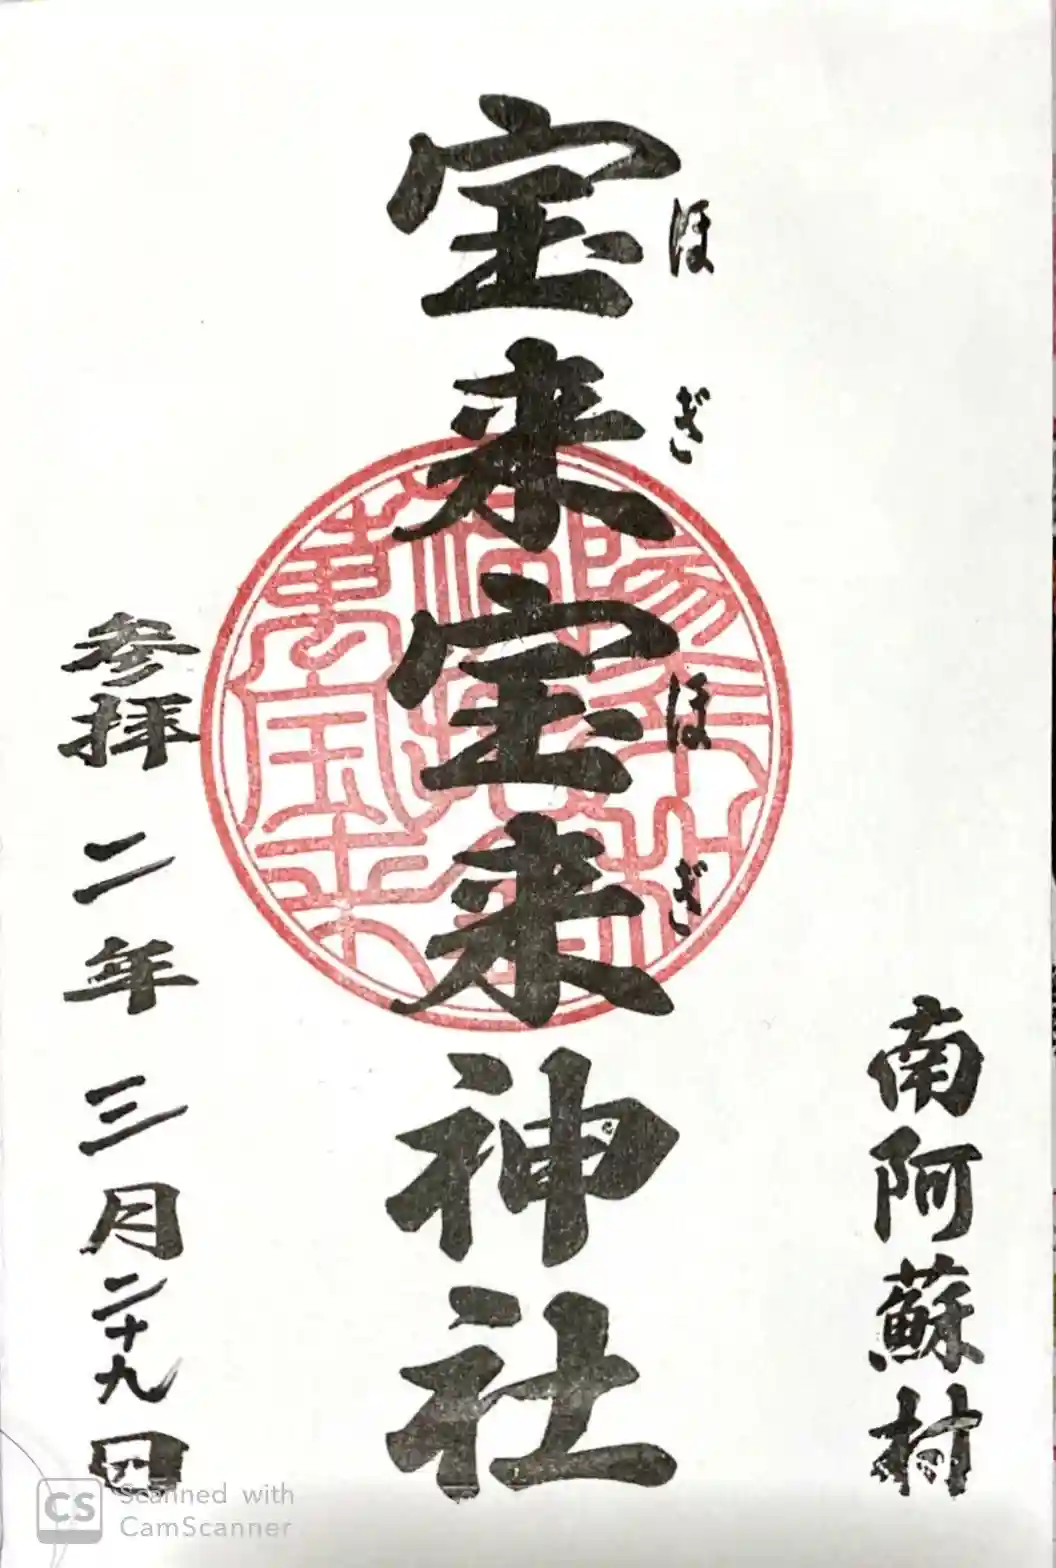 南阿蘇村
宝来宝来神社
ほぎほぎ
参拝 二年 三月二十九日
CS Scanned with
CamScanner